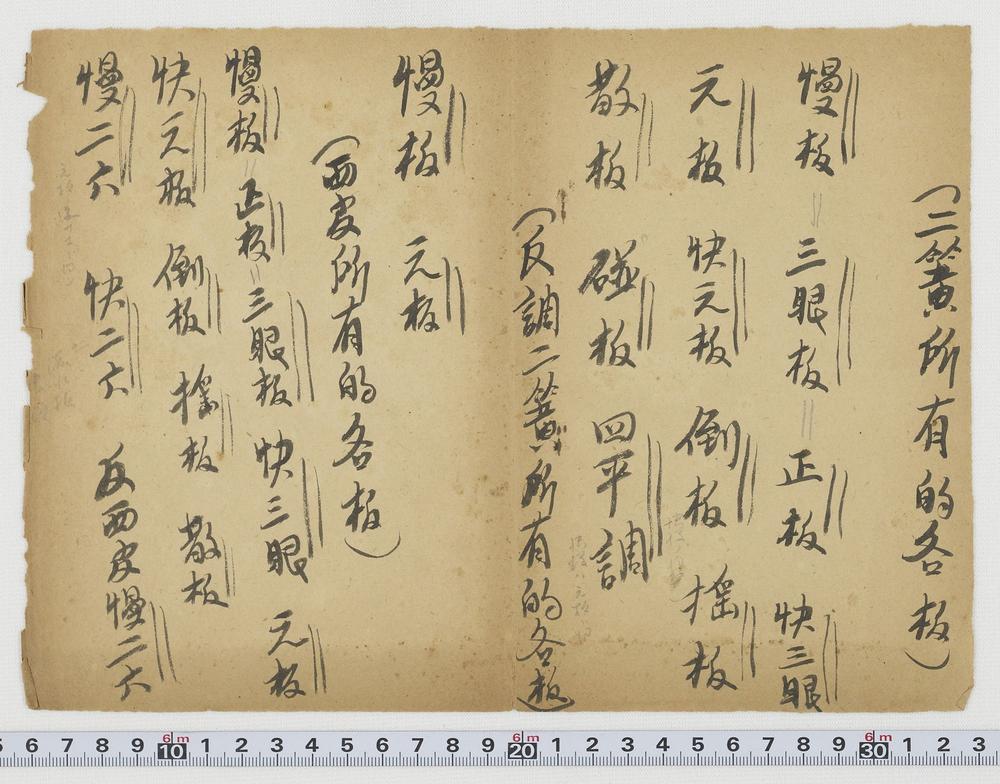 (二簧所有的各板)
慢板=三眼板=正板 快三眼
元板 快元板 倒板 搖板
散板 碰板 四平調
(反調二簧所有的各板)
慢板 元板
(西皮所有的各板)
慢板=正板=三眼板 快三眼 元板
快元板 倒板 搖板 散板
慢二六 快二六 反西皮慢二六
5 6 7 8 9 10 1 2 3 4 5 6 7 8 9 20 1 2 3 4 5 6 7 8 9 30 1 2 3
6m 6m 6m